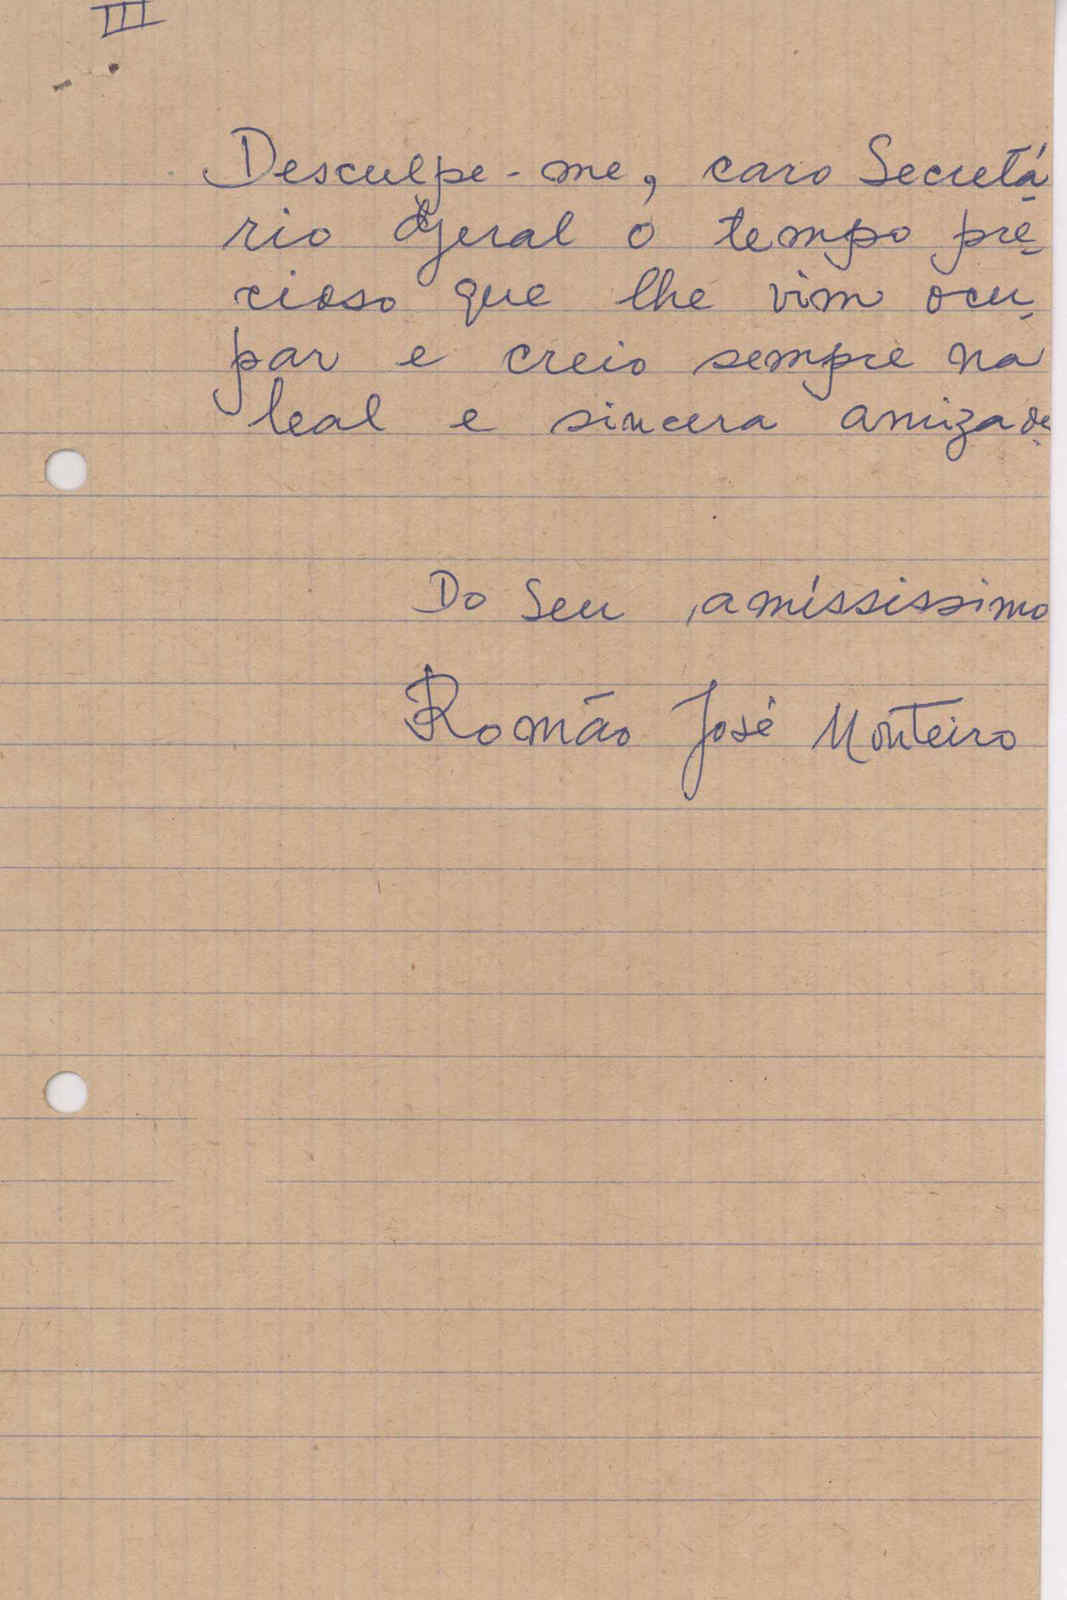 III
Desculpe-me, caro Secretá
rio Geral o tempo pre
cioso que lhe vim ocu
par e creio sempre na
leal e sincera amizade
Do Seu amíssississimo
Romão José Monteiro